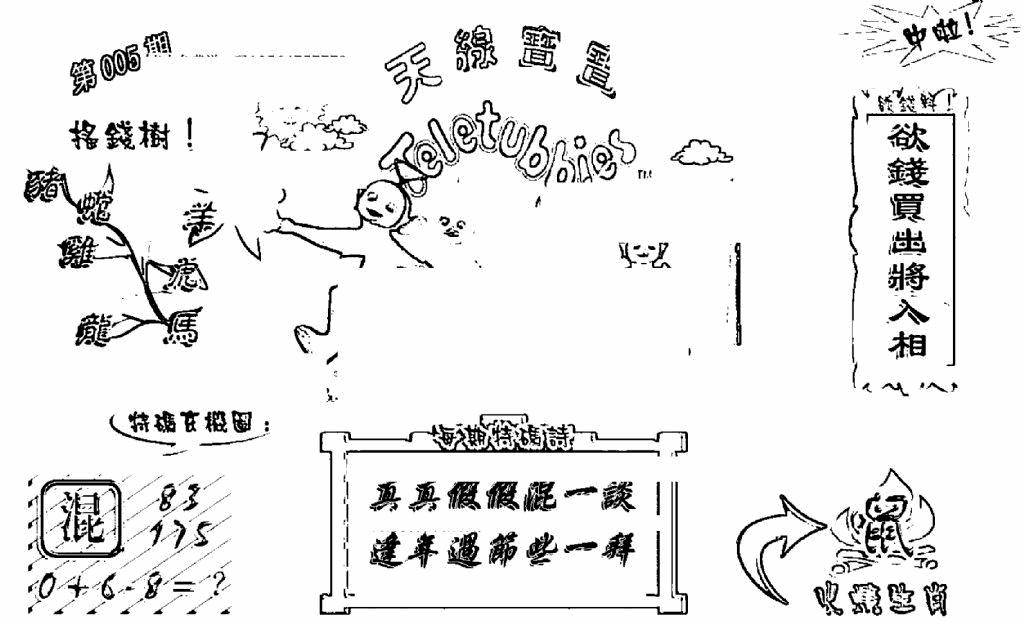 第005期
天線寶寶
中啦！
Teletubbies
TM
搖錢樹！
豬
蛇
羊
雞
虎
龍
馬
欲錢買出將入相
特碼玄機圖：
混
83
175
0+6-8=?
每期特碼詩
真真假假混一談
逢年過節些一拜
火燒生肖